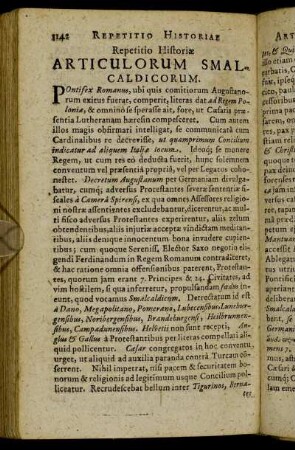 1142 REPETITIO HISTORIAE
Repetitio Historiæ
ARTICULORUM SMAL-
CALDICORUM.
POntifex Romanus, ubi quis comitiorum Augustano-
rum exitus fuerat, comperit, literas dat ad Regem Po-
loniæ, & omninò se sperasse ait, fore, ut Cæsaris præ-
sentia Lutheranam hæresin compesceret. Cum autem
illos magis obfirmari intelligat, se communicatâ cum
Cardinalibus re decrevisse, ut quamprimum Concilium
indicatur ad aliquem Italiæ locum. Idoq; se monere
Regem, ut cum res eò deducta fuerit, huic solennem
conventum vel præsentiâ propriâ, vel per Legatos coho-
nestet. Decretum Augustanum per Germaniam divulga-
batur, cumq; adversus Protestantes severæ sententiæ fi-
scales à Camerâ Spirensi, ex qua omnes Assessores religi-
oni nostræ assentientes excludebantur, dicerentur, ac mul-
ti fisco adversus Protestantes experirentur, aliis zelum
obtendentibus, aliis injuriæ acceptæ vindictam meditan-
tibus, aliis denique innocentum bona invadere cupien-
tibus: cum quoque Serenissimus Elector Saxo negotio eli-
gendi Ferdinandum in Regem Romanum contradiceret,
& hac ratione omnia offensionibus paterent, Protestan-
tes, quorum jam erant 7. Principes & 24. Civitates, ad
vim hostilem, si qua inferretur, propulsandam fœdus in-
eunt, quod vocamus Smalcaldicum. Detrectatum id est
à Dano, Megapolitano, Pomerano, Lubecensibus, Lunebur-
gensibus, Noribergensibus, Brandeburgensi, Heilbrunnen-
sibus, Campadunensibus. Helvetii non sunt recepti, An-
glus & Gallus à Protestantibus per literas compellati ali-
quid pollicentur. Cæsar congregatos in hoc conventu
urget, ut aliquid ad auxilia paranda contra Turcam con-
ferrent. Nihil impetrat, nisi pacem & securitatem bo-
norum & religionis ad legitimum usque Concilium pol-
liceatur. Recrudescebat bellum inter Tigurinos, Berna-